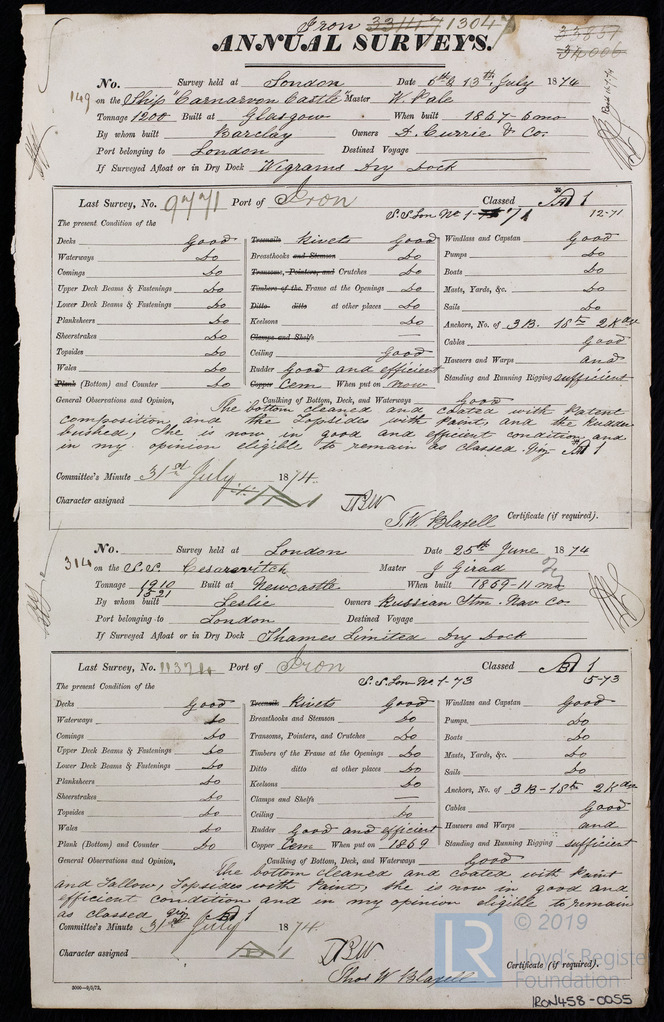 Iron 33147 13047
33837
34006
ANNUAL SURVEYS.
No. Survey held at London Date 6th & 13th July 1874
149 on the Ship "Carnarvon Castle" Master W. Pale
Tonnage 1200 Built at Glasgow When built 1867-6mo
By whom built Barclay Owners D. Currie & Co.
Port belonging to London Destined Voyage
If Surveyed Afloat or in Dry Dock Wigrams Dry Dock
Last Survey, No. 9771 Port of Iron Classed A 1
S.S. Lon No. 1-71 12-71
The present Condition of the
Decks Good Treenails Rivets Good Windlass and Capstan Good
Waterways Do Breasthooks and Stemson Do Pumps Do
Comings Do Transoms, Pointers, and Crutches Do Boats Do
Upper Deck Beams & Fastenings Do Timbers of the Frame at the Openings Do Masts, Yards, &c. Do
Lower Deck Beams & Fastenings Do Ditto ditto at other places Do Sails Do
Planksheers Do Keelsons Do Anchors, No. of 3 B. 1 Sm 2 Kdgs
Sheerstrakes Do Clamps and Shelfs — Cables Good
Topsides Do Ceiling Good Hawsers and Warps and
Wales Do Rudder good and efficient Standing and Running Rigging sufficient
Plank (Bottom) and Counter Do Copper Cem When put on now
General Observations and Opinion, Caulking of Bottom, Deck, and Waterways Good
The bottom cleaned and coated with Patent
composition and the Topsides with Paint, and the Rudder
bushed, She is now in good and efficient condition and
in my opinion eligible to remain as classed A 1
Committee's Minute 31st July 1874.
Character assigned
T. W. Blaxell Certificate (if required).
No. Survey held at London Date 25th June 1874
314 on the S.S. Cesarevitch Master J Girad
Tonnage 1910 1521 Built at Newcastle When built 1869-11 mo
By whom built Leslie Owners Russian Stm. Nav Co.
Port belonging to London Destined Voyage
If Surveyed Afloat or in Dry Dock Thames Limited Dry Dock
Last Survey, No. Port of Iron Classed A 1
S.S. Lon No. 1-73 5-73
The present Condition of the
Decks Good Treenails Rivets Good Windlass and Capstan Good
Waterways Do Breasthooks and Stemson Do Pumps Do
Comings Do Transoms, Pointers, and Crutches Do Boats Do
Upper Deck Beams & Fastenings Do Timbers of the Frame at the Openings Do Masts, Yards, &c. Do
Lower Deck Beams & Fastenings Do Ditto ditto at other places Do Sails Do
Planksheers Do Keelsons Do Anchors, No. of 3 B - 1 Sm 2 Kdgs
Sheerstrakes Do Clamps and Shelfs — Cables Good
Topsides Do Ceiling Do Hawsers and Warps and
Wales Do Rudder Good and efficient Standing and Running Rigging sufficient
Plank (Bottom) and Counter Do Copper Cem When put on 1869
General Observations and Opinion, Caulking of Bottom, Deck, and Waterways Good
The bottom cleaned and coated with Paint
and Tallow, Topsides with Paint, She is now in good and
efficient condition and in my opinion eligible to remain
as classed A 1
Committee's Minute 31st July 1874.
Character assigned
Thos W Blaxell Certificate (if required).
LR © 2019
Lloyd's Register
Foundation
IRON458-0055